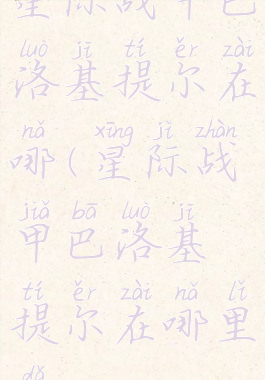 星际战甲巴
luò jī tí ěr zài
洛基提尔在
nǎ xīng jì zhàn
哪(星际战
jiǎ bā luò jī
甲巴洛基
tí ěr zài nǎ lǐ
提尔在哪里
dǎ